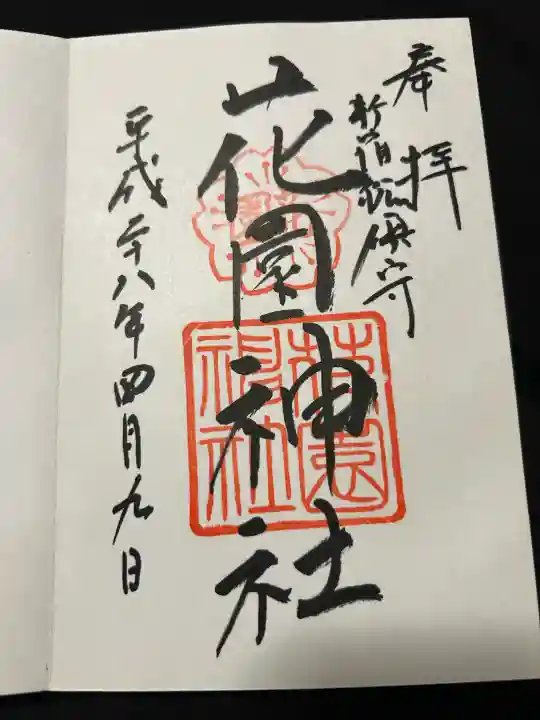 奉拝
新宿総鎮守
花園神社
花園神社
平成二十八年四月九日